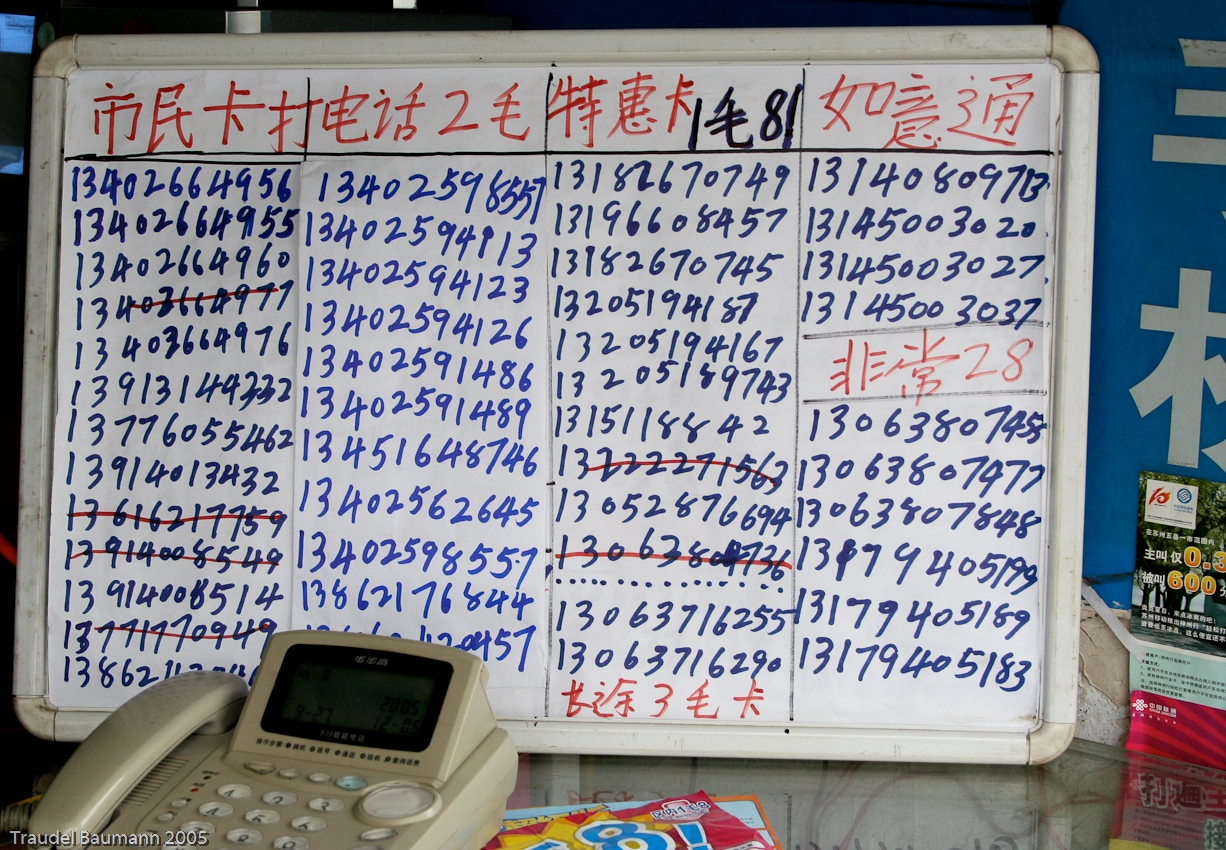 市民卡打电话2毛
13402664956
13402664955
13402664960
13403664977
13403664976
13913144332
13776055462
13914013432
13616217759
13914008549
13914008514
13771770949
13402598557
13402594113
13402594123
13402594126
13402591486
13402591489
13451648746
13402562645
13402598557
13862176844
0457
特惠卡1毛8!
13182670749
13196608457
13182670745
13205194187
13205194167
13205189743
1315118842
13222271563
13052876694
13063716255
13063716290
长途3毛卡
如意通
13145003020
13145003027
13145003037
非常28
13063807458
13063807477
13063807848
13179405199
13179405189
13179405183
步步高
2005
9-27
12-05
在苏州五县一市范围内
主叫仅0.3
被叫600分
中国联通
8!
Traudel Baumann 2005